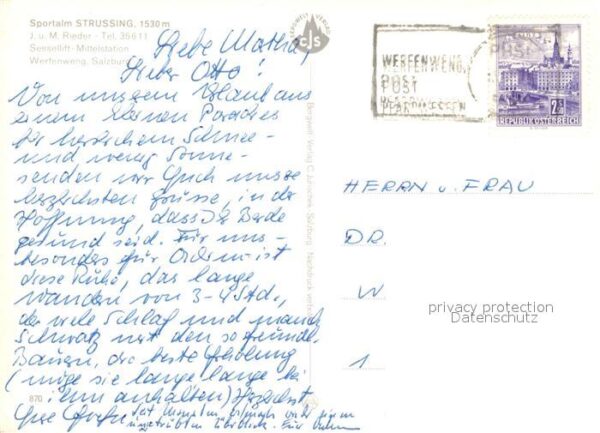 Sportalm STRUSSING, 1530 m
J. u. M. Rieder - Tel. 35611
Sessellift-Mittelstation
Werfenweng, Salzburg
BERGWELT VERLAG
cjs
WERFENWENG
POST
POST
REPUBLIK ÖSTERREICH
2 S
Liebe Martha,
Lieber Otto!
Von unserem Urlaub aus
einem kleinen Paradies
bei herrlichem Schnee
und wenig Sonne
senden wir Euch unsere
herzlichsten Grüsse, in der
Hoffnung, dass Ihr Beide
gesund seid. Für uns -
besonders für - ist
diese Ruhe, das lange
Wandern von 3-4 Std.,
der viele Schlaf und manch
Schwatz mit den so freundl.
Bauern, die beste Erholung
(möge sie lange lange bei
ihm anhalten) Herzlichst
Eure
HERRN u. FRAU
DR.
W
1
privacy protection
Datenschutz
870
Bergwelt-Verlag C. Salzburg Nachdruck